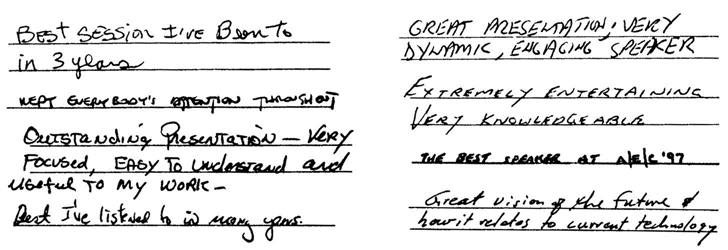 Best Session I've Been to
in 3 years
KEPT EVERYBODY'S ATTENTION THROUGHOUT
Outstanding Presentation — Very
Focused, EASY TO understand and
useful TO MY WORK —
Best I've listened to in many years.
GREAT PRESENTATION, VERY
DYNAMIC, ENGAGING SPEAKER
EXTREMELY ENTERTAINING
VERY KNOWLEDGEABLE
THE BEST SPEAKER AT A/E/C '97
Great vision of the future &
how it relates to current technology